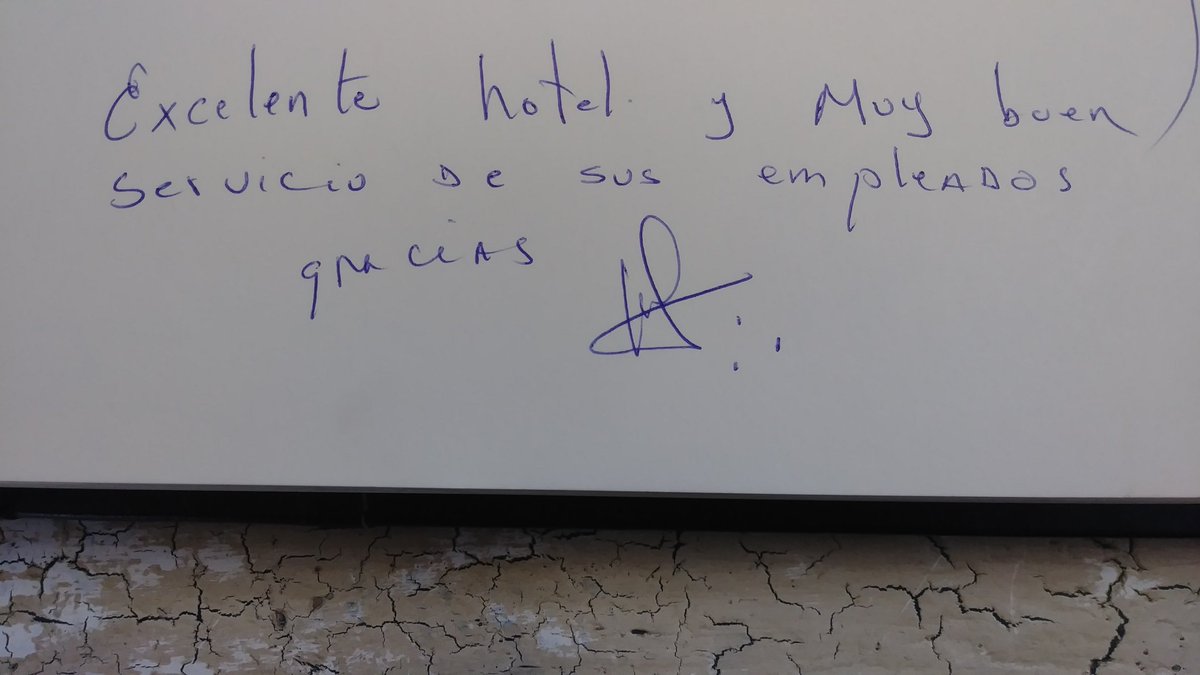 Excelente hotel y Muy buen
Servicio De sus empleADOS
gracias